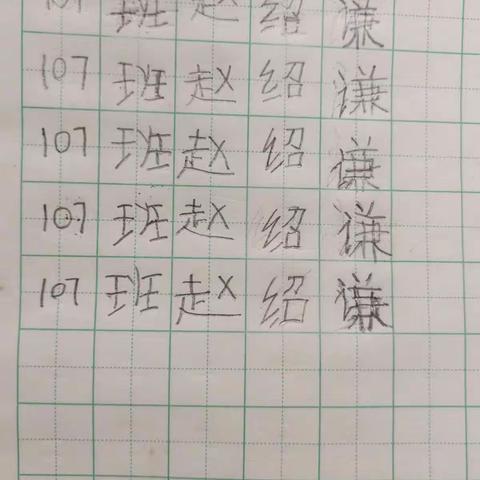 107班赵绍谦
107班赵绍谦
107班赵绍谦
107班赵绍谦
107班赵绍谦